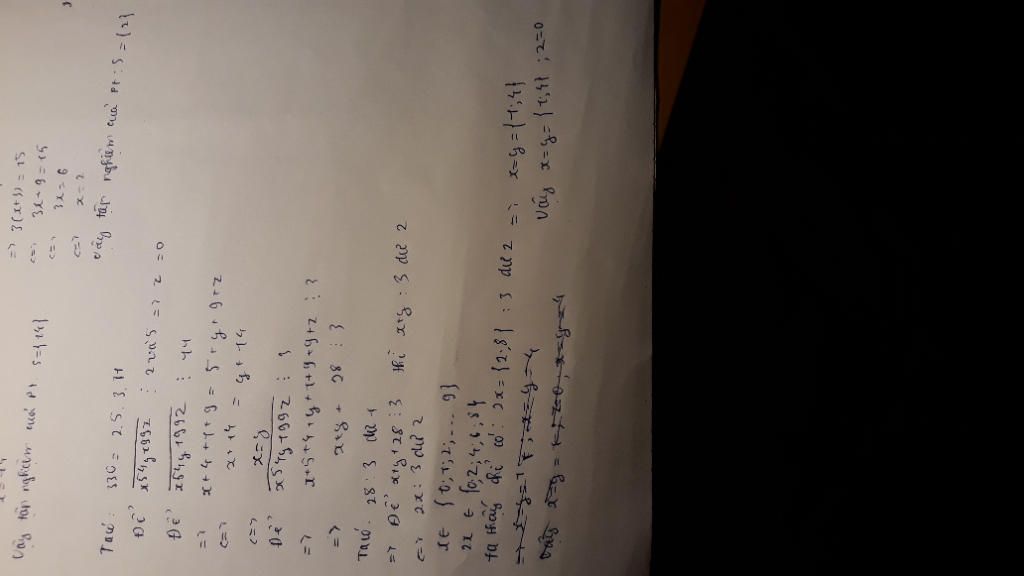 Vậy tập nghiệm của pt S={14}
=> 3(x+3)=15
<=> 3x+9=15
<=> 3x=6
<=> x=2
Vậy tập nghiệm của Pt : S={2}
Ta có: 330 = 2.5.3.11
Để x54y199z ⋮ 2 và 5 => z=0
Để x54y199z ⋮ 11
=> x+4+1+9 = 5+y+9+z
<=> x+14 = y+14
<=> x=y
Để x54y199z ⋮ 3
=> x+5+4+y+1+9+9+z ⋮ 3
=> x+y+28 ⋮ 3
Ta có: 28 : 3 dư 1
=> Để x+y+28 ⋮ 3 thì x+y : 3 dư 2
<=> 2x : 3 dư 2
x∈{0;1;2;....9}
2x∈{0;2;4;6;8}
ta thấy chỉ có: 2x={2;8} : 3 dư 2 => x=y={1;4}
Vậy x=y={1;4} ; z=0